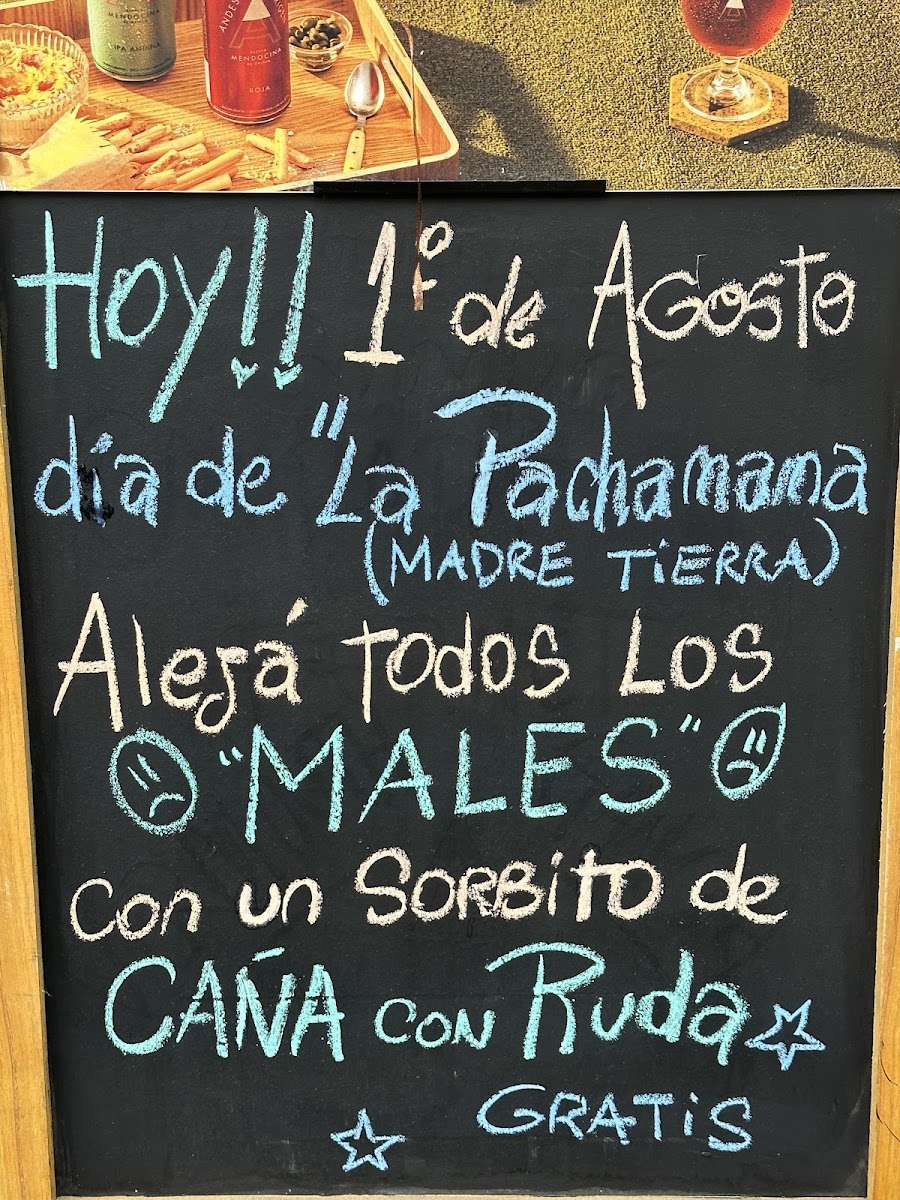 MENDOCINA
IPA ANDINA
ANDES
MENDOCINA
ROJA
Hoy!! 1º de Agosto
día de "La Pachamama
(MADRE TIERRA)
Alejá todos los
"MALES"
con un SORBITO de
CAÑA con Ruda
GRATIS